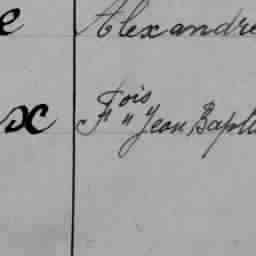 e Alexandre
x Fois " Jean Bapt